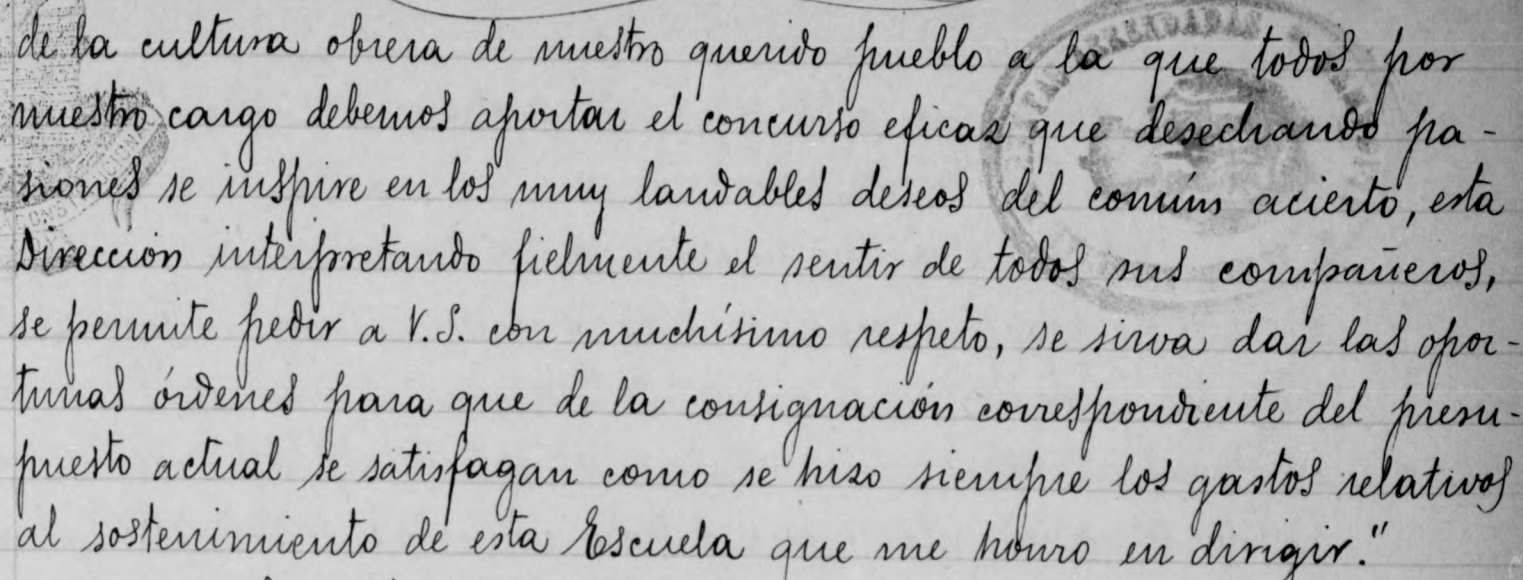 de la cultura obrera de nuestro querido pueblo a la que todos por
nuestro cargo debemos aportar el concurso eficaz que desechando pa-
siones se inspire en los muy laudables deseos del común acierto, esta
Dirección interpretando fielmente el sentir de todos sus compañeros,
se permite pedir a V.S. con muchísimo respeto, se sirva dar las opor-
tunas órdenes para que de la consignación correspondiente del presu-
puesto actual se satisfagan como se hizo siempre los gastos relativos
al sostenimiento de esta Escuela que me honro en dirigir."